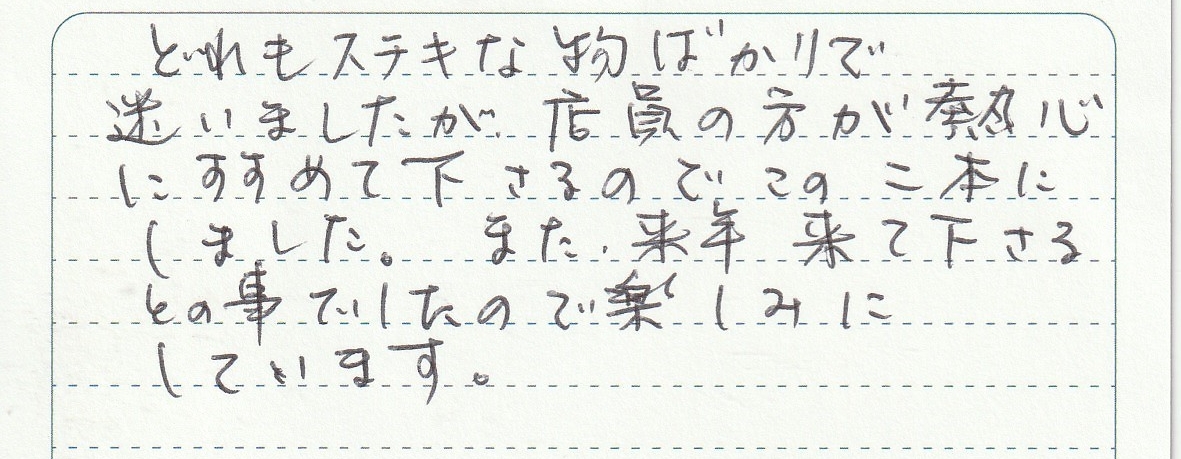 どれもステキな物ばかりで
迷いましたが、店員の方が熱心
にすすめて下さるのでこの二本に
しました。 また、来年 来て下さる
との事でしたので楽しみに
しています。